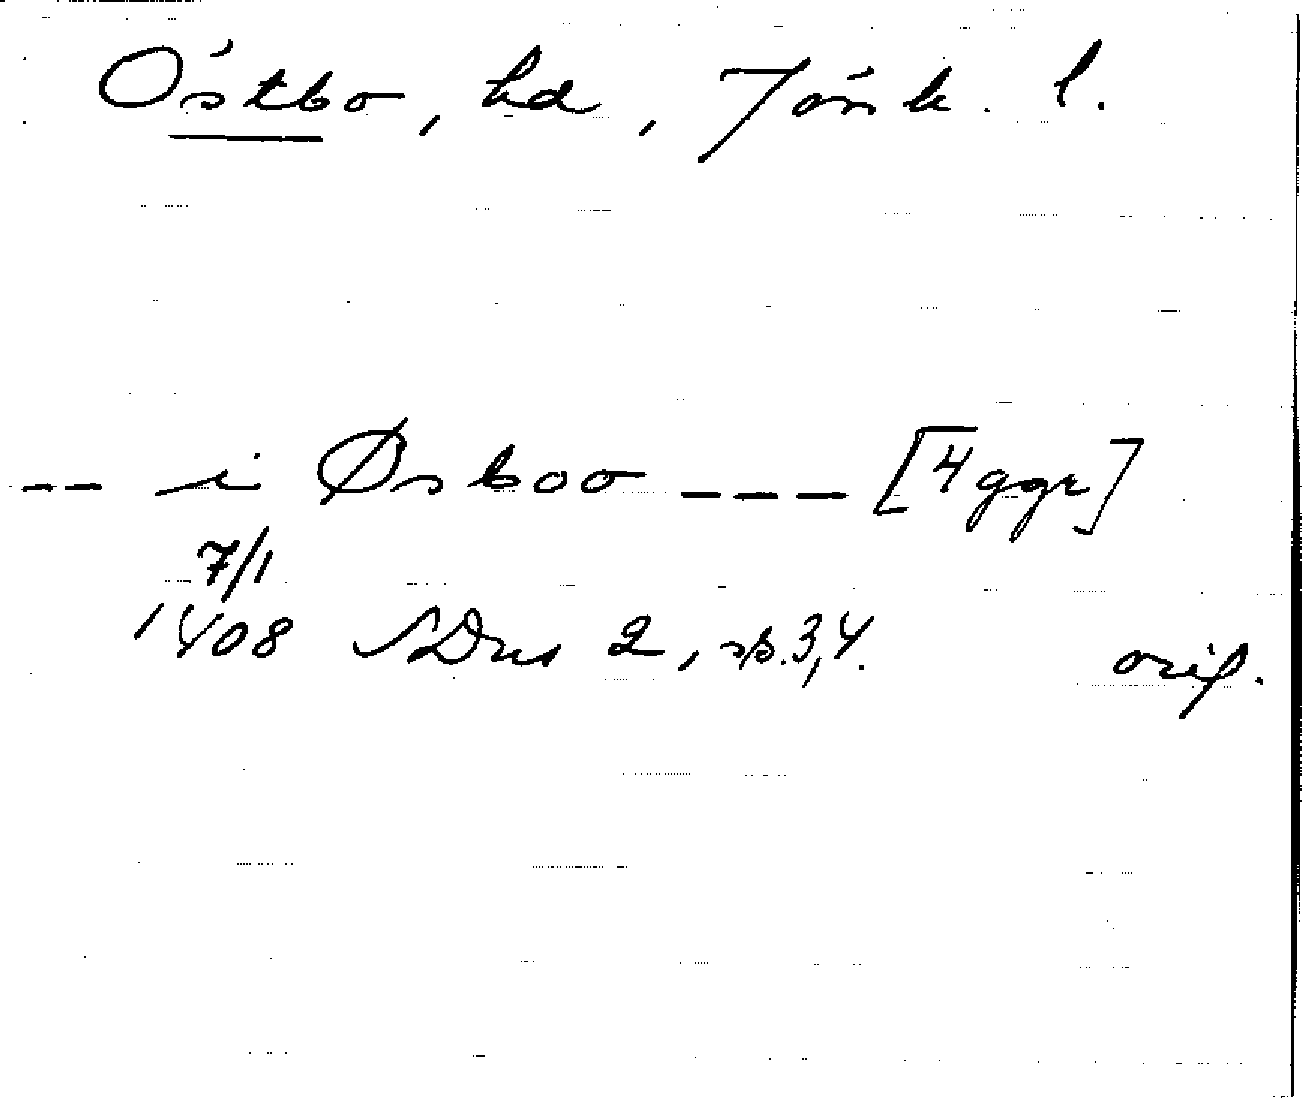 Östbo, hd, Jönk. l.
-- i Øsboo --- [4 ggr]
7/1
1408 SDns 2, sp. 3, 4. orig.